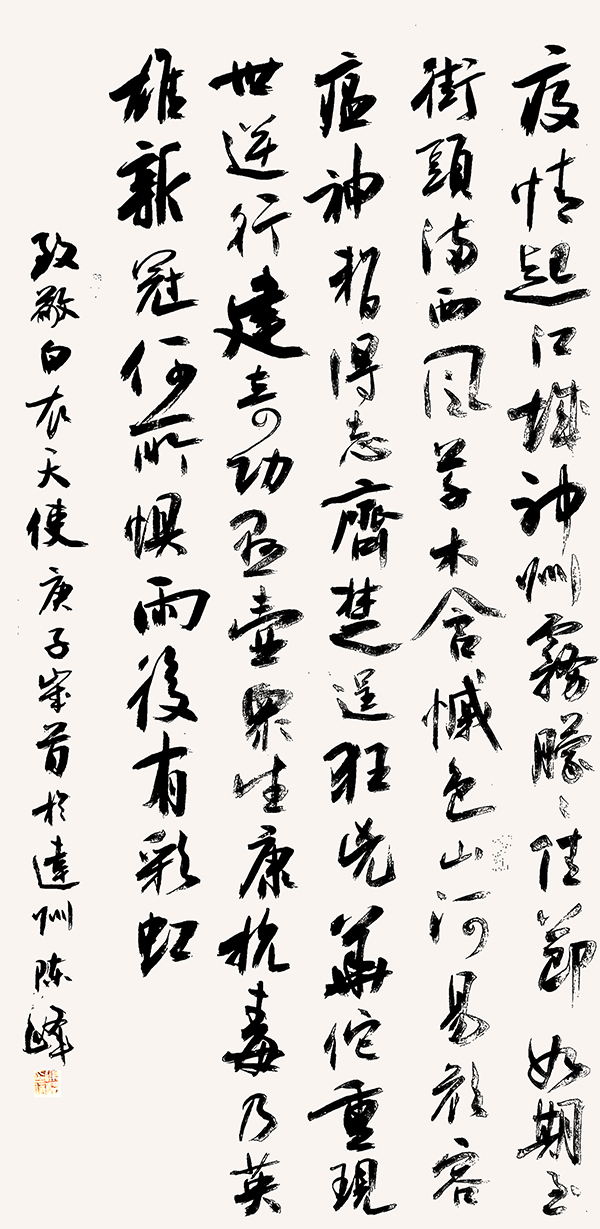 疫情起江城神州霧朦〻佳節如期至
街頭滿西風草木含慽色山河易顏容
瘟神暫得志齊楚逞狂兇華佗重現
世逆行建奇功函壺眾生康抗毒乃英
雄新冠何所懼雨後有彩虹
致敬白衣天使庚子歲首於達州陈峰